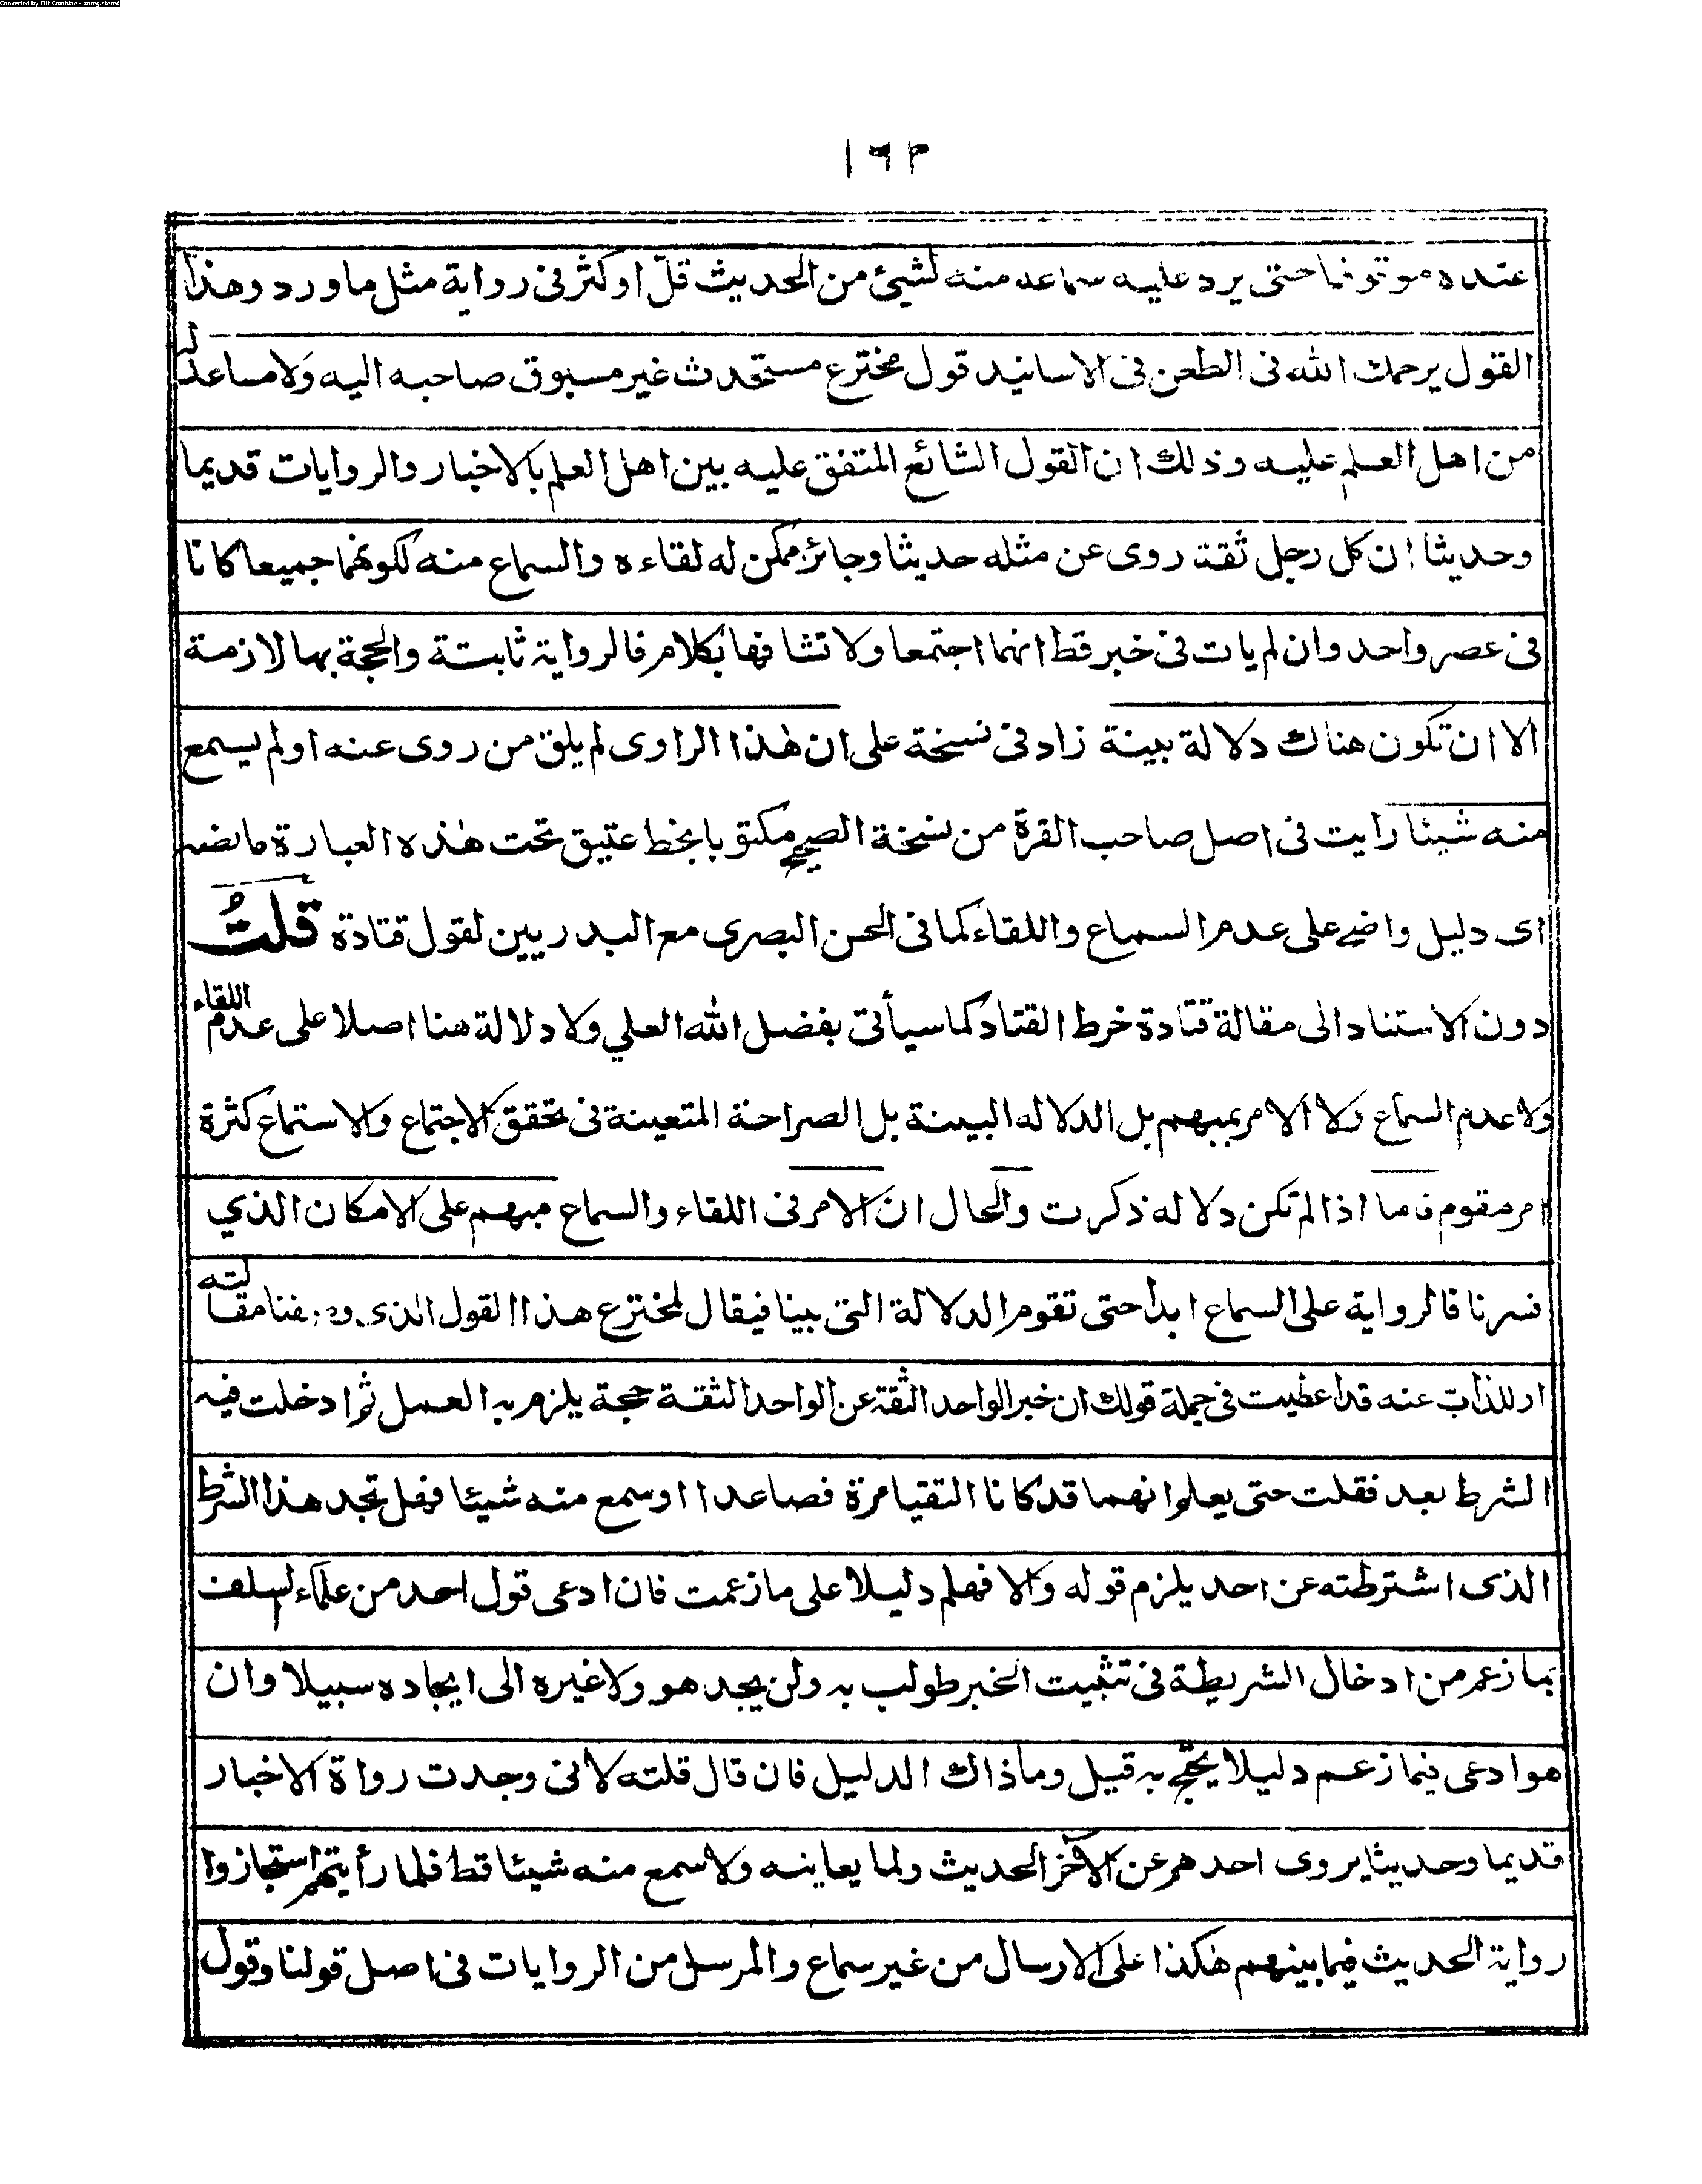 Converted by Tiff Combine - unregistered
١٦٣
عنده موقوفا حتى يرد عليه سماعه منه لشيئ من الحديث قلّ او كثر فى رواية مثل ما ورد وهذا
القول يرحمك الله فى الطعن فى الاسانيد قول مخترع مستحدث غير مسبوق صاحبه اليه ولا مساعد له
من اهل العلم عليه وذلك ان القول الشائع المتفق عليه بين اهل العلم بالاخبار والروايات قديما
وحديثا ان كل رجل ثقة روى عن مثله حديثا وجائز ممكن له لقاءه والسماع منه لكونهما جميعا كانا
فى عصر واحد وان لم يات فى خبر قط انهما اجتمعا ولا تشافها بكلام فالرواية ثابتة والحجة بها لازمة
الا ان تكون هناك دلالة بينة زاد فى نسخة على ان هذا الراوى لم يلق من روى عنه او لم يسمع
منه شيئا رايت فى اصل صاحب القرة من نسخة الصحيح مكتوبا بخط عتيق تحت هذه العبارة ما نصه
اى دليل واضح على عدم السماع واللقاء كما فى الحسن البصرى مع البدريين لقول قتادة قلتُ
دون الاستناد الى مقالة قتادة خرط القتاد كما سيأتى بفضل الله العلي ولا دلالة هنا اصلا على عدم اللقاء
ولا عدم السماع ولا الامر بمبهم بل الدلاله البينة بل الصراحة المتعينة فى تحقق الاجتماع والاستماع كثرة
امر مقوم فاما اذا لم تكن دلاله ذكرت والحال ان الامر فى اللقاء والسماع مبهم على الامكان الذي
فسرنا فالرواية على السماع ابدا حتى تقوم الدلالة التى بينا فيقال لمخترع هذا القول الذى وصفنا مقالته
او للذاب عنه قد اعطيت فى جملة قولك ان خبر الواحد الثقة عن الواحد الثقة حجة يلزم به العمل ثم ادخلت فيه
الشرط بعد فقلت حتى يعلم انهما قد كانا التقيا مرة فصاعدا او سمع منه شيئا فهل تجد هذا الشرط
الذى اشترطته عن احد يلزم قوله والا فهلم دليلا على ما زعمت فان ادعى قول احد من علماء السلف
بما زعم من ادخال الشريطة فى تثبيت الخبر طولب به ولن يجد هو ولا غيره الى ايجاده سبيلا وان
هو ادعى فيما زعم دليلا يحتج به قيل وما ذاك الدليل فان قال قلته لانى وجدت رواة الاخبار
قديما وحديثا يروى احدهم عن الآخر الحديث ولما يعاينه ولا سمع منه شيئا قط فلما رأيتهم استجازوا
رواية الحديث فيما بينهم هكذا على الارسال من غير سماع والمرسل من الروايات فى اصل قولنا وقول